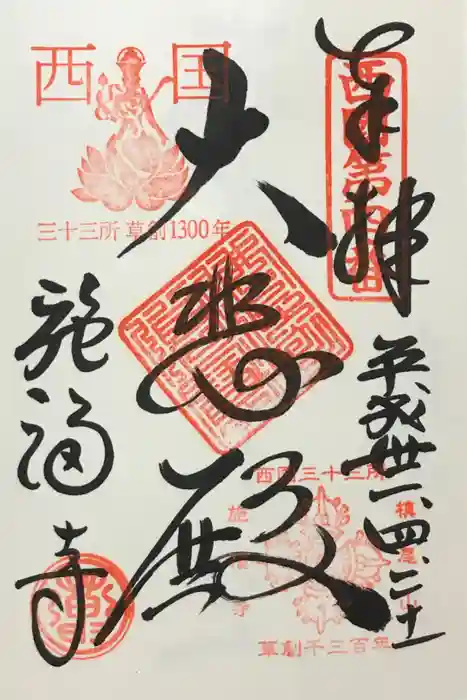 奉拝
西國第四番
平成卅一、四、二十一
槙尾山
大悲殿
西国
三十三所 草創1300年
西国三十三所
施福寺
草創千三百年
施福寺